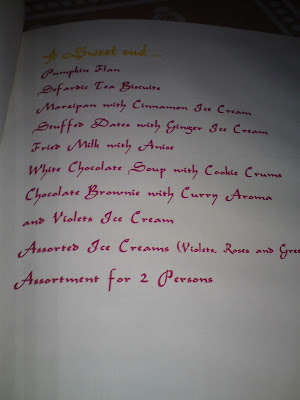 A Sweet end ...
Pumpkin Flan
Sefardic Tea Biscuits
Marzipan with Cinnamon Ice Cream
Stuffed Dates with Ginger Ice Cream
Fried Milk with Anise
White Chocolate Soup with Cookie Crums
Chocolate Brownie with Curry Aroma
and Violets Ice Cream
Assorted Ice Creams (Violets, Roses and Gree
Assortment for 2 Persons